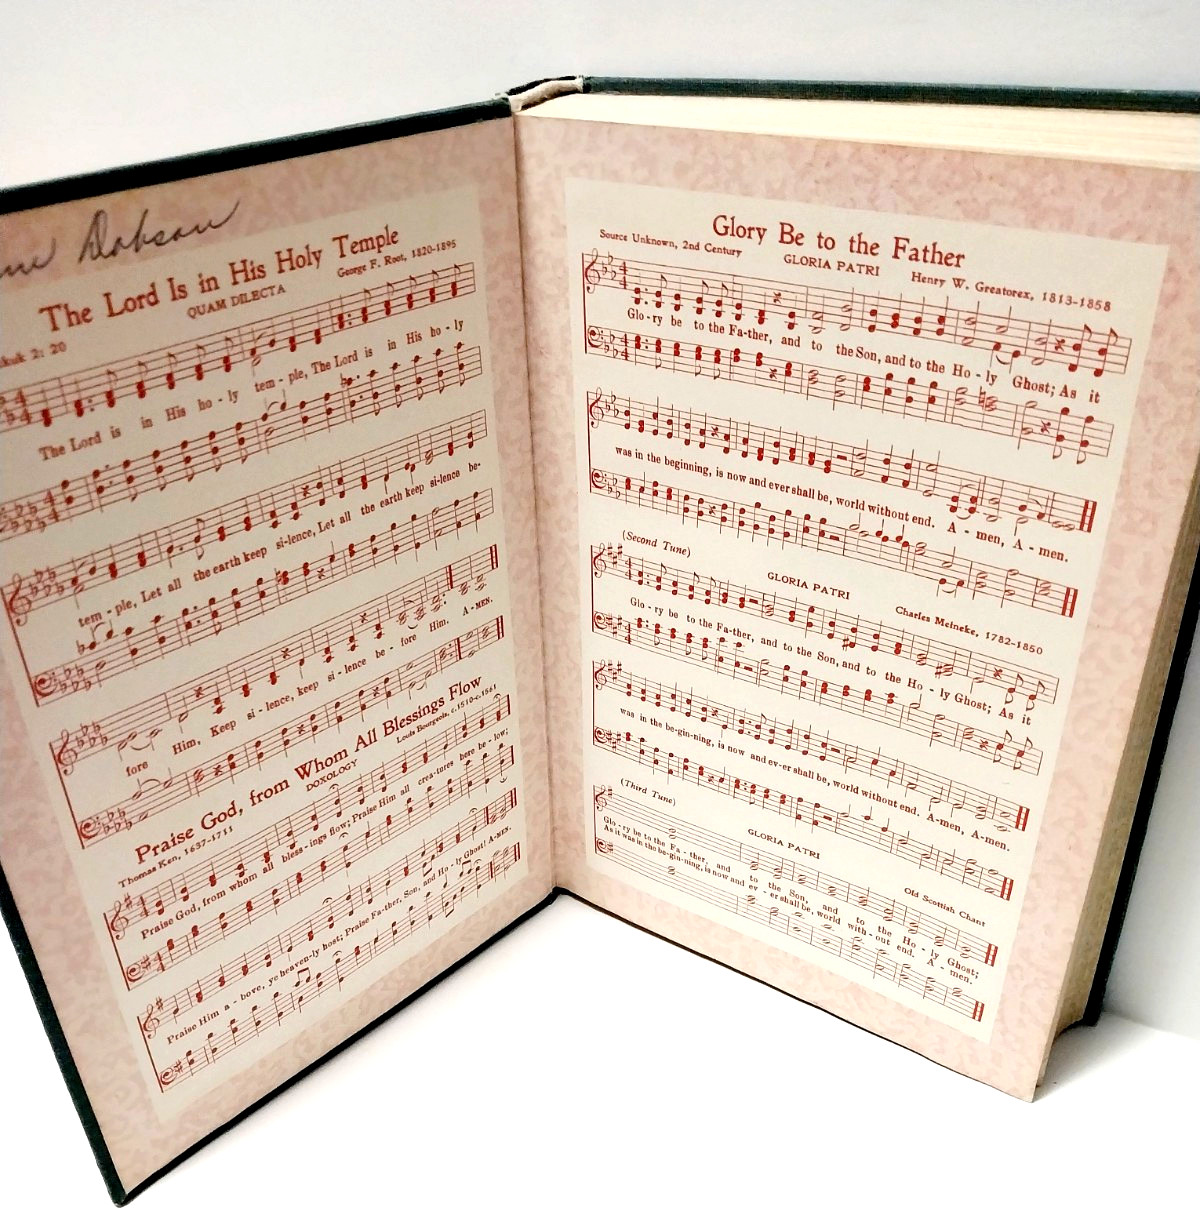 Dobson
The Lord Is in His Holy Temple
QUAM DILECTA
George F. Root, 1820-1895
2: 20
The Lord is in His ho - ly tem - ple, The Lord is in His ho - ly
tem - ple, Let all the earth keep si-lence, Let all the earth keep si-lence be-
fore Him, Keep si - lence, keep si - lence be - fore Him. A - MEN.
Praise God, from Whom All Blessings Flow
Thomas Ken, 1637-1711
DOXOLOGY
Louis Bourgeois, c.1510-c.1561
Praise God, from whom all bless - ings flow; Praise Him all crea-tures here be - low;
Praise Him a - bove, ye heaven-ly host; Praise Fa-ther, Son, and Ho - ly Ghost! A-MEN.
Glory Be to the Father
Source Unknown, 2nd Century
GLORIA PATRI
Henry W. Greatorex, 1813-1858
Glo - ry be to the Fa-ther, and to the Son, and to the Ho - ly Ghost; As it
was in the beginning, is now and ever shall be, world without end. A - men, A - men.
(Second Tune)
GLORIA PATRI
Charles Meineke, 1782-1850
Glo - ry be to the Fa-ther, and to the Son, and to the Ho - ly Ghost; As it
was in the be-gin-ning, is now and ev-er shall be, world without end. A-men, A-men.
(Third Tune)
GLORIA PATRI
Old Scottish Chant
Glo - ry be to the Fa - ther, and to the Son, and to the Ho - ly Ghost;
As it was in the be-gin-ning, is now and ev - er shall be, world with - out end. A - men.